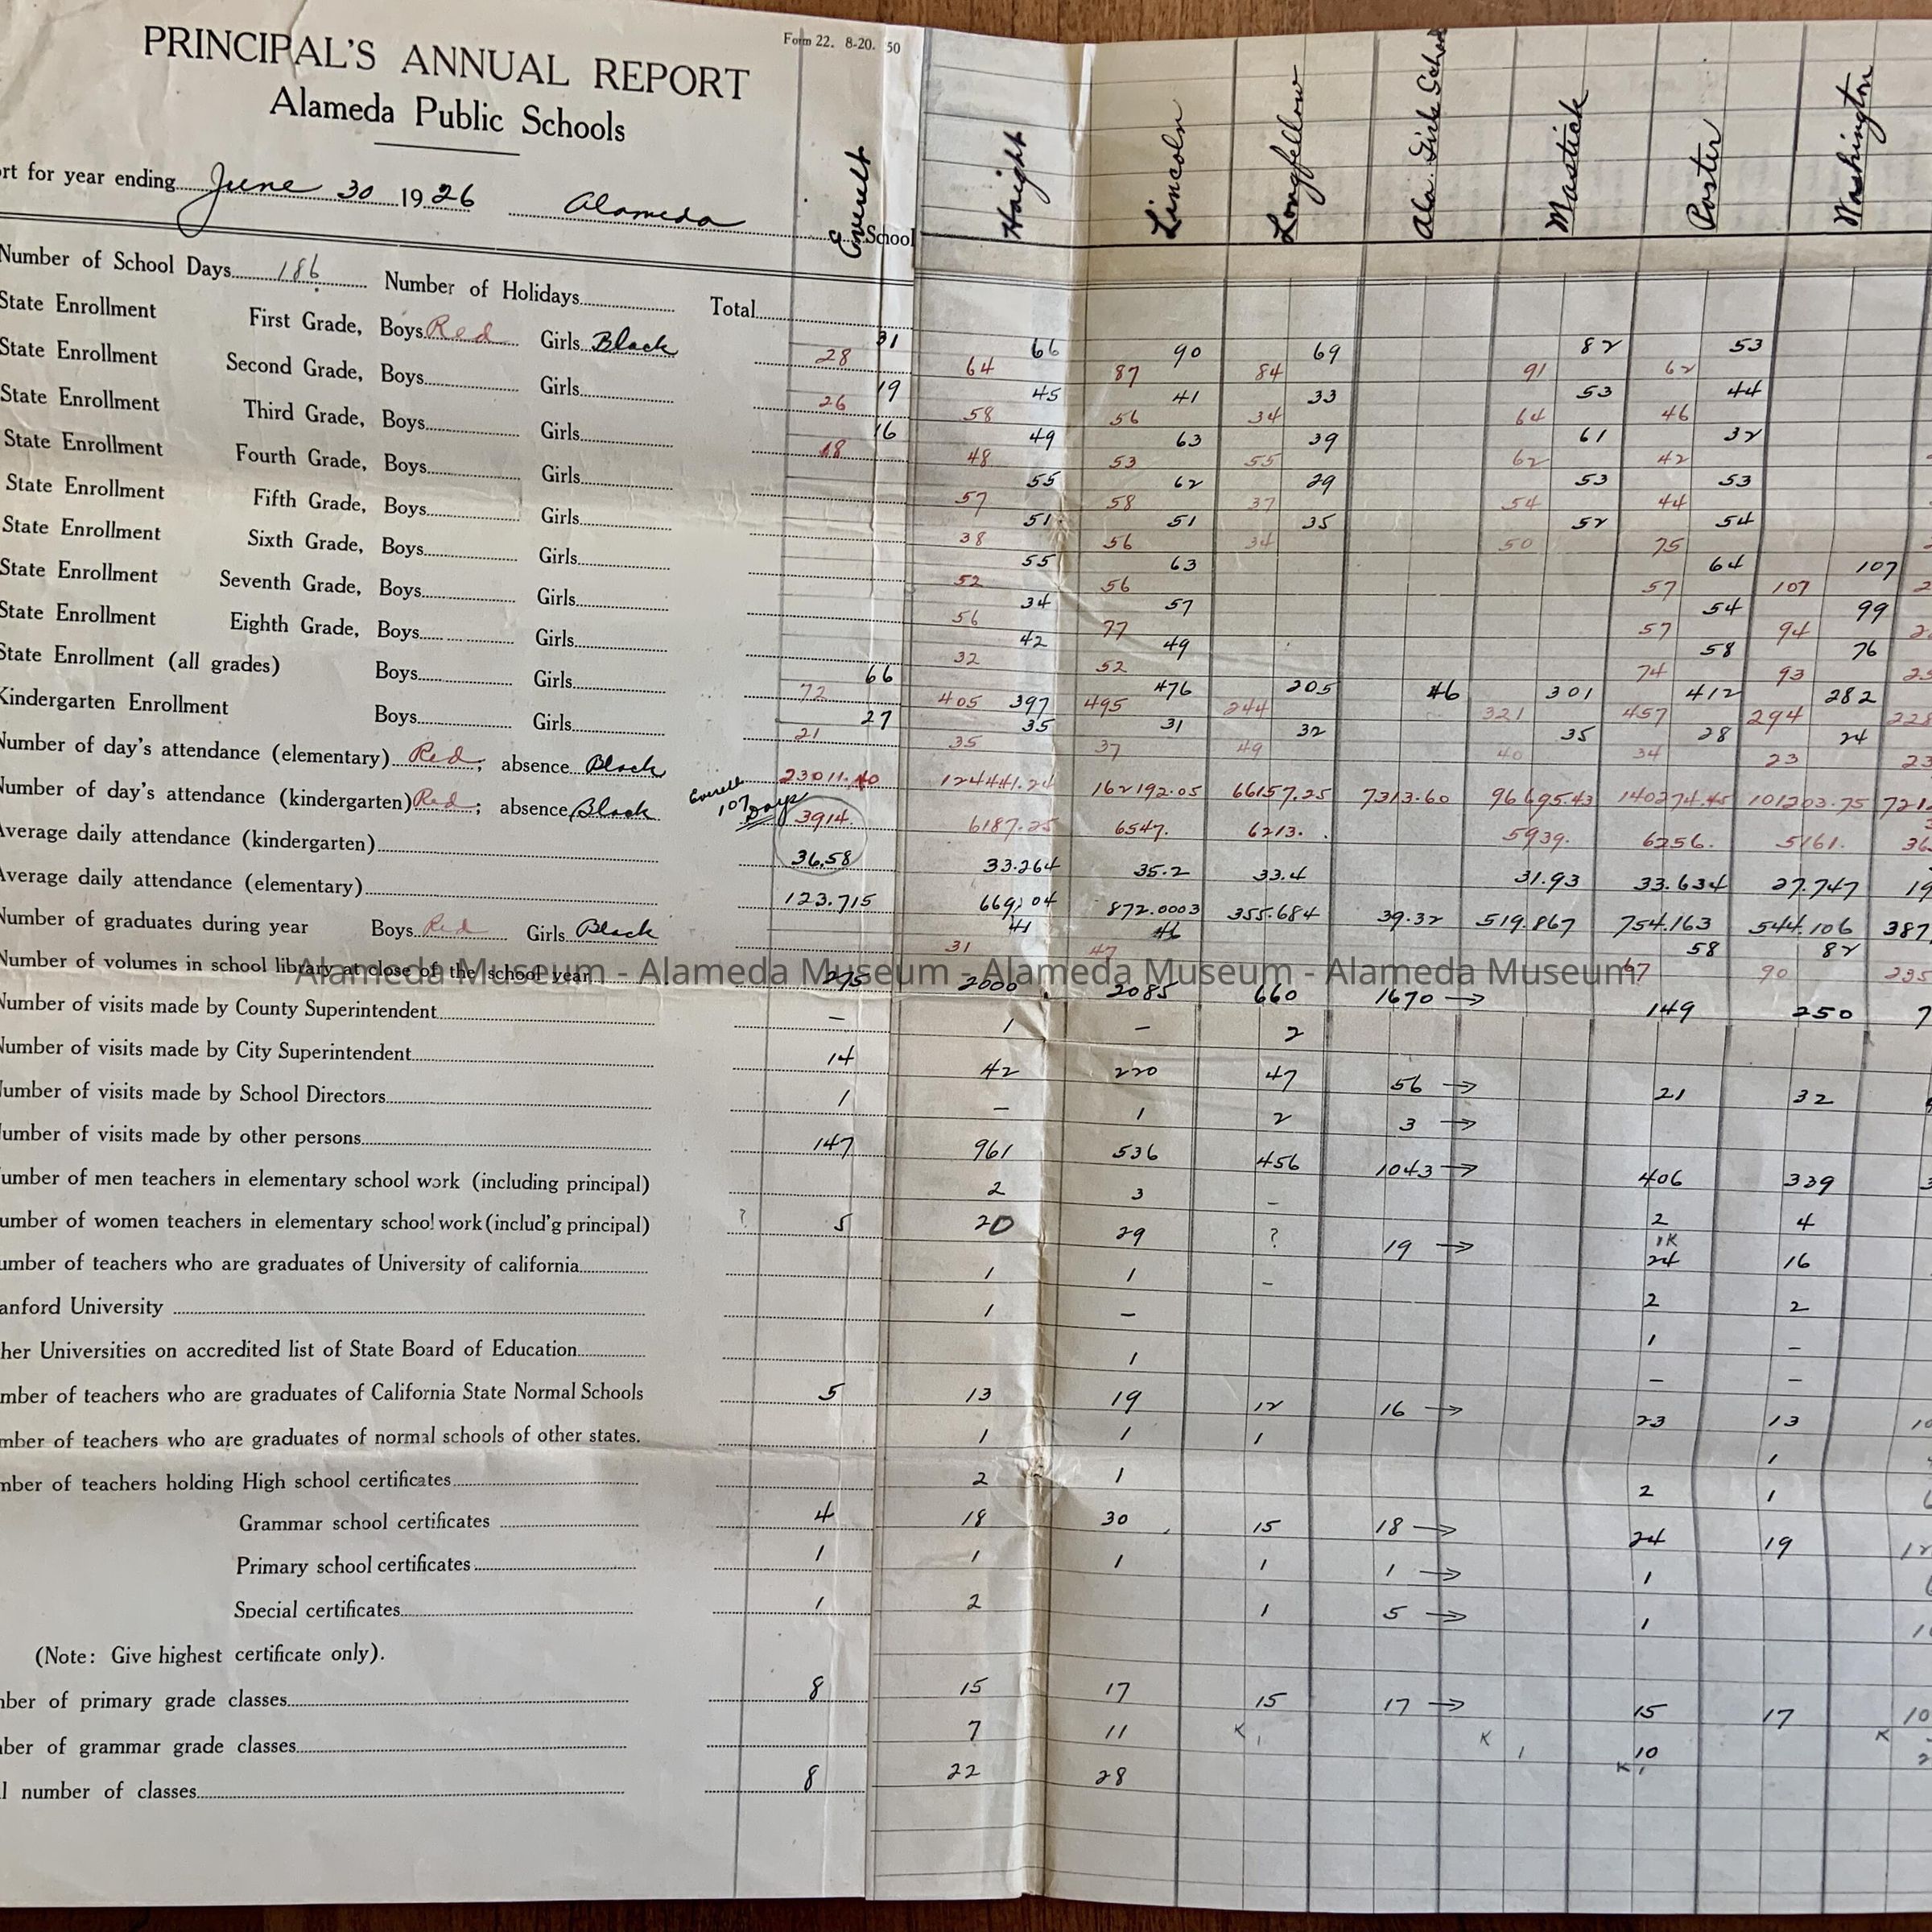 Form 22. 8-20. 50
PRINCIPAL'S ANNUAL REPORT
Alameda Public Schools
rt for year ending June 30 1926 Alameda School
Everett Haight Lincoln Longfellow Ala. Girls School Mastick Porter Washington
Number of School Days 186 Number of Holidays Total
State Enrollment First Grade, Boys Red Girls Black 28 31 64 66 87 90 84 69 91 82 62 53
State Enrollment Second Grade, Boys Girls 26 19 58 45 56 41 34 33 64 53 46 44
State Enrollment Third Grade, Boys Girls 18 16 48 49 53 63 55 39 62 61 42 32
State Enrollment Fourth Grade, Boys Girls 57 55 58 62 37 29 54 53 44 53
State Enrollment Fifth Grade, Boys Girls 38 51 56 51 34 35 50 52 75 54
State Enrollment Sixth Grade, Boys Girls 52 55 56 63 57 64 107 107
State Enrollment Seventh Grade, Boys Girls 56 34 77 57 57 54 94 99
State Enrollment Eighth Grade, Boys Girls 32 42 52 49 74 58 93 76
State Enrollment (all grades) Boys Girls 72 66 405 397 495 476 244 205 46 321 301 457 412 294 282 228
Kindergarten Enrollment Boys Girls 21 27 35 35 37 31 49 32 40 35 34 28 23 24 23
Number of day's attendance (elementary) Red; absence Black 23011.40 124441.24 162192.05 66157.25 7313.60 96695.43 140274.45 101203.75 721
Number of day's attendance (kindergarten) Red; absence Black Everett 107 Days 3914. 6187.25 6547. 6213. 5939. 6256. 5161. 36
Average daily attendance (kindergarten) 36.58 33.264 35.2 33.4 31.93 33.634 27.747 19
Average daily attendance (elementary) 123.715 669.04 872.0003 355.684 39.32 519.867 754.163 544.106 387
Number of graduates during year Boys Red Girls Black 31 41 47 46 67 58 90 82 235
Number of volumes in school library at close of the school year 275 2000 2085 660 1670 → 149 250 7
Alameda Museum - Alameda Museum - Alameda Museum - Alameda Museum
Number of visits made by County Superintendent – 1 – 2
Number of visits made by City Superintendent 14 42 220 47 56 → 21 32
Number of visits made by School Directors 1 – 1 2 3 →
Number of visits made by other persons 147 961 536 456 1043 → 406 339
umber of men teachers in elementary school work (including principal) 2 3 – 2 4
umber of women teachers in elementary school work (includ'g principal) ? 5 20 29 ? 19 → 1K 24 16
umber of teachers who are graduates of University of california 1 1 – 2 2
anford University 1 – 1 –
her Universities on accredited list of State Board of Education 1 – –
mber of teachers who are graduates of California State Normal Schools 5 13 19 12 16 → 23 13 10
mber of teachers who are graduates of normal schools of other states. 1 1 1 1
mber of teachers holding High school certificates 2 1 2 1
Grammar school certificates 4 18 30 15 18 → 24 19 12
Primary school certificates 1 1 1 1 1 → 1
Special certificates 1 2 1 5 → 1
(Note: Give highest certificate only).
ber of primary grade classes 8 15 17 15 17 → 15 17 10
ber of grammar grade classes 7 11 K 1 K 1 10 K
l number of classes 8 22 28 K 1